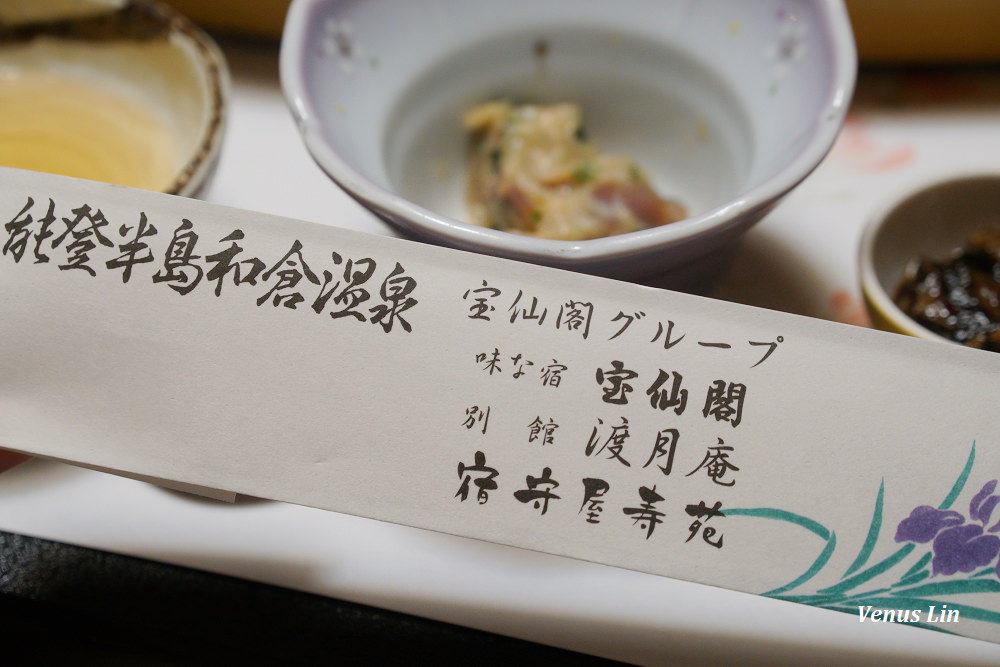 能登半島和倉温泉
宝仙閣グループ
味な宿 宝仙閣
別館 渡月庵
宿守屋寿苑
Venus Lin